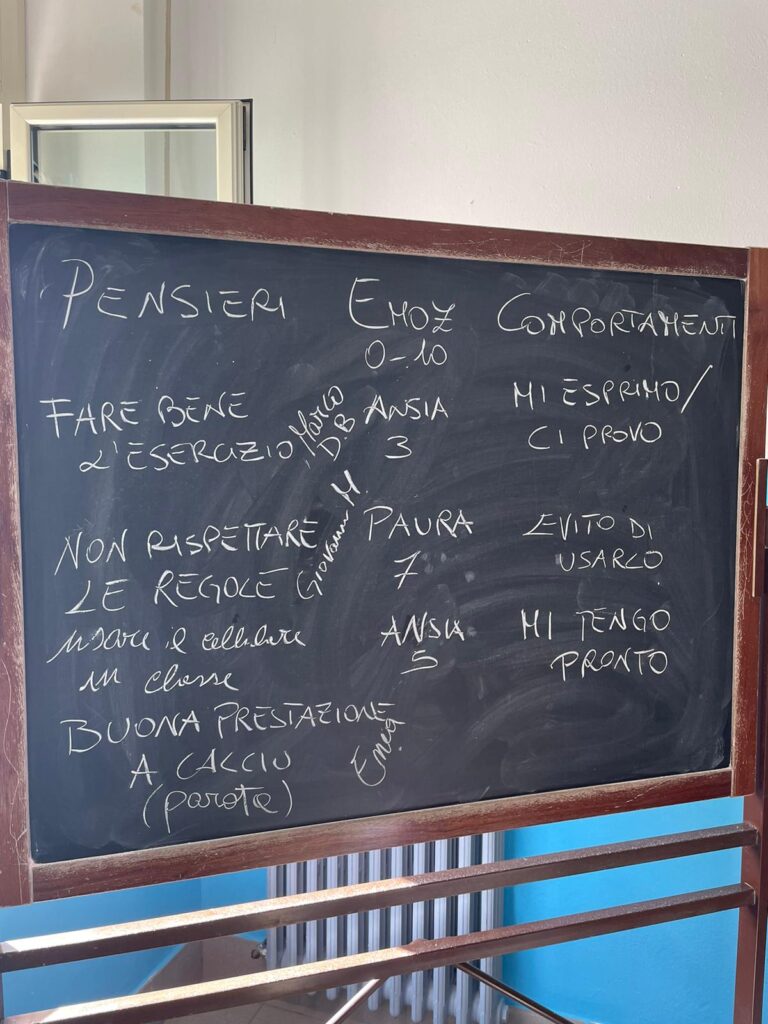 PENSIERI EMOZ COMPORTAMENTI
0-10
FARE BENE
L'ESERCIZIO
Marco
D.B
ANSIA
3
MI ESPRIMO/
CI PROVO
NON RISPETTARE
LE REGOLE
Giovanni M.
PAURA
7
EVITO DI
USARLO
usare il cellulare
in classe
ANSIA
5
MI TENGO
PRONTO
BUONA PRESTAZIONE
A CALCIO
(parata)
Enea